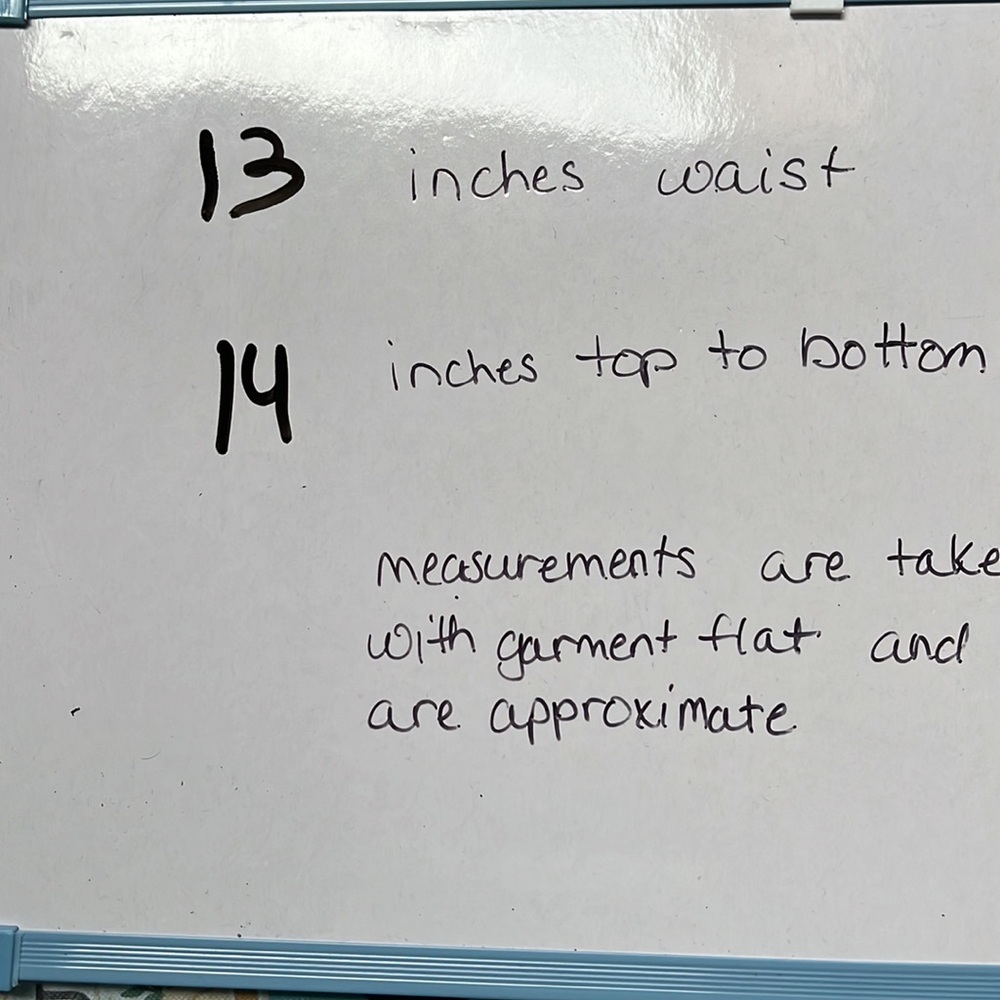 13 inches waist
14 inches top to bottom
measurements are take
with garment flat and
are approximate